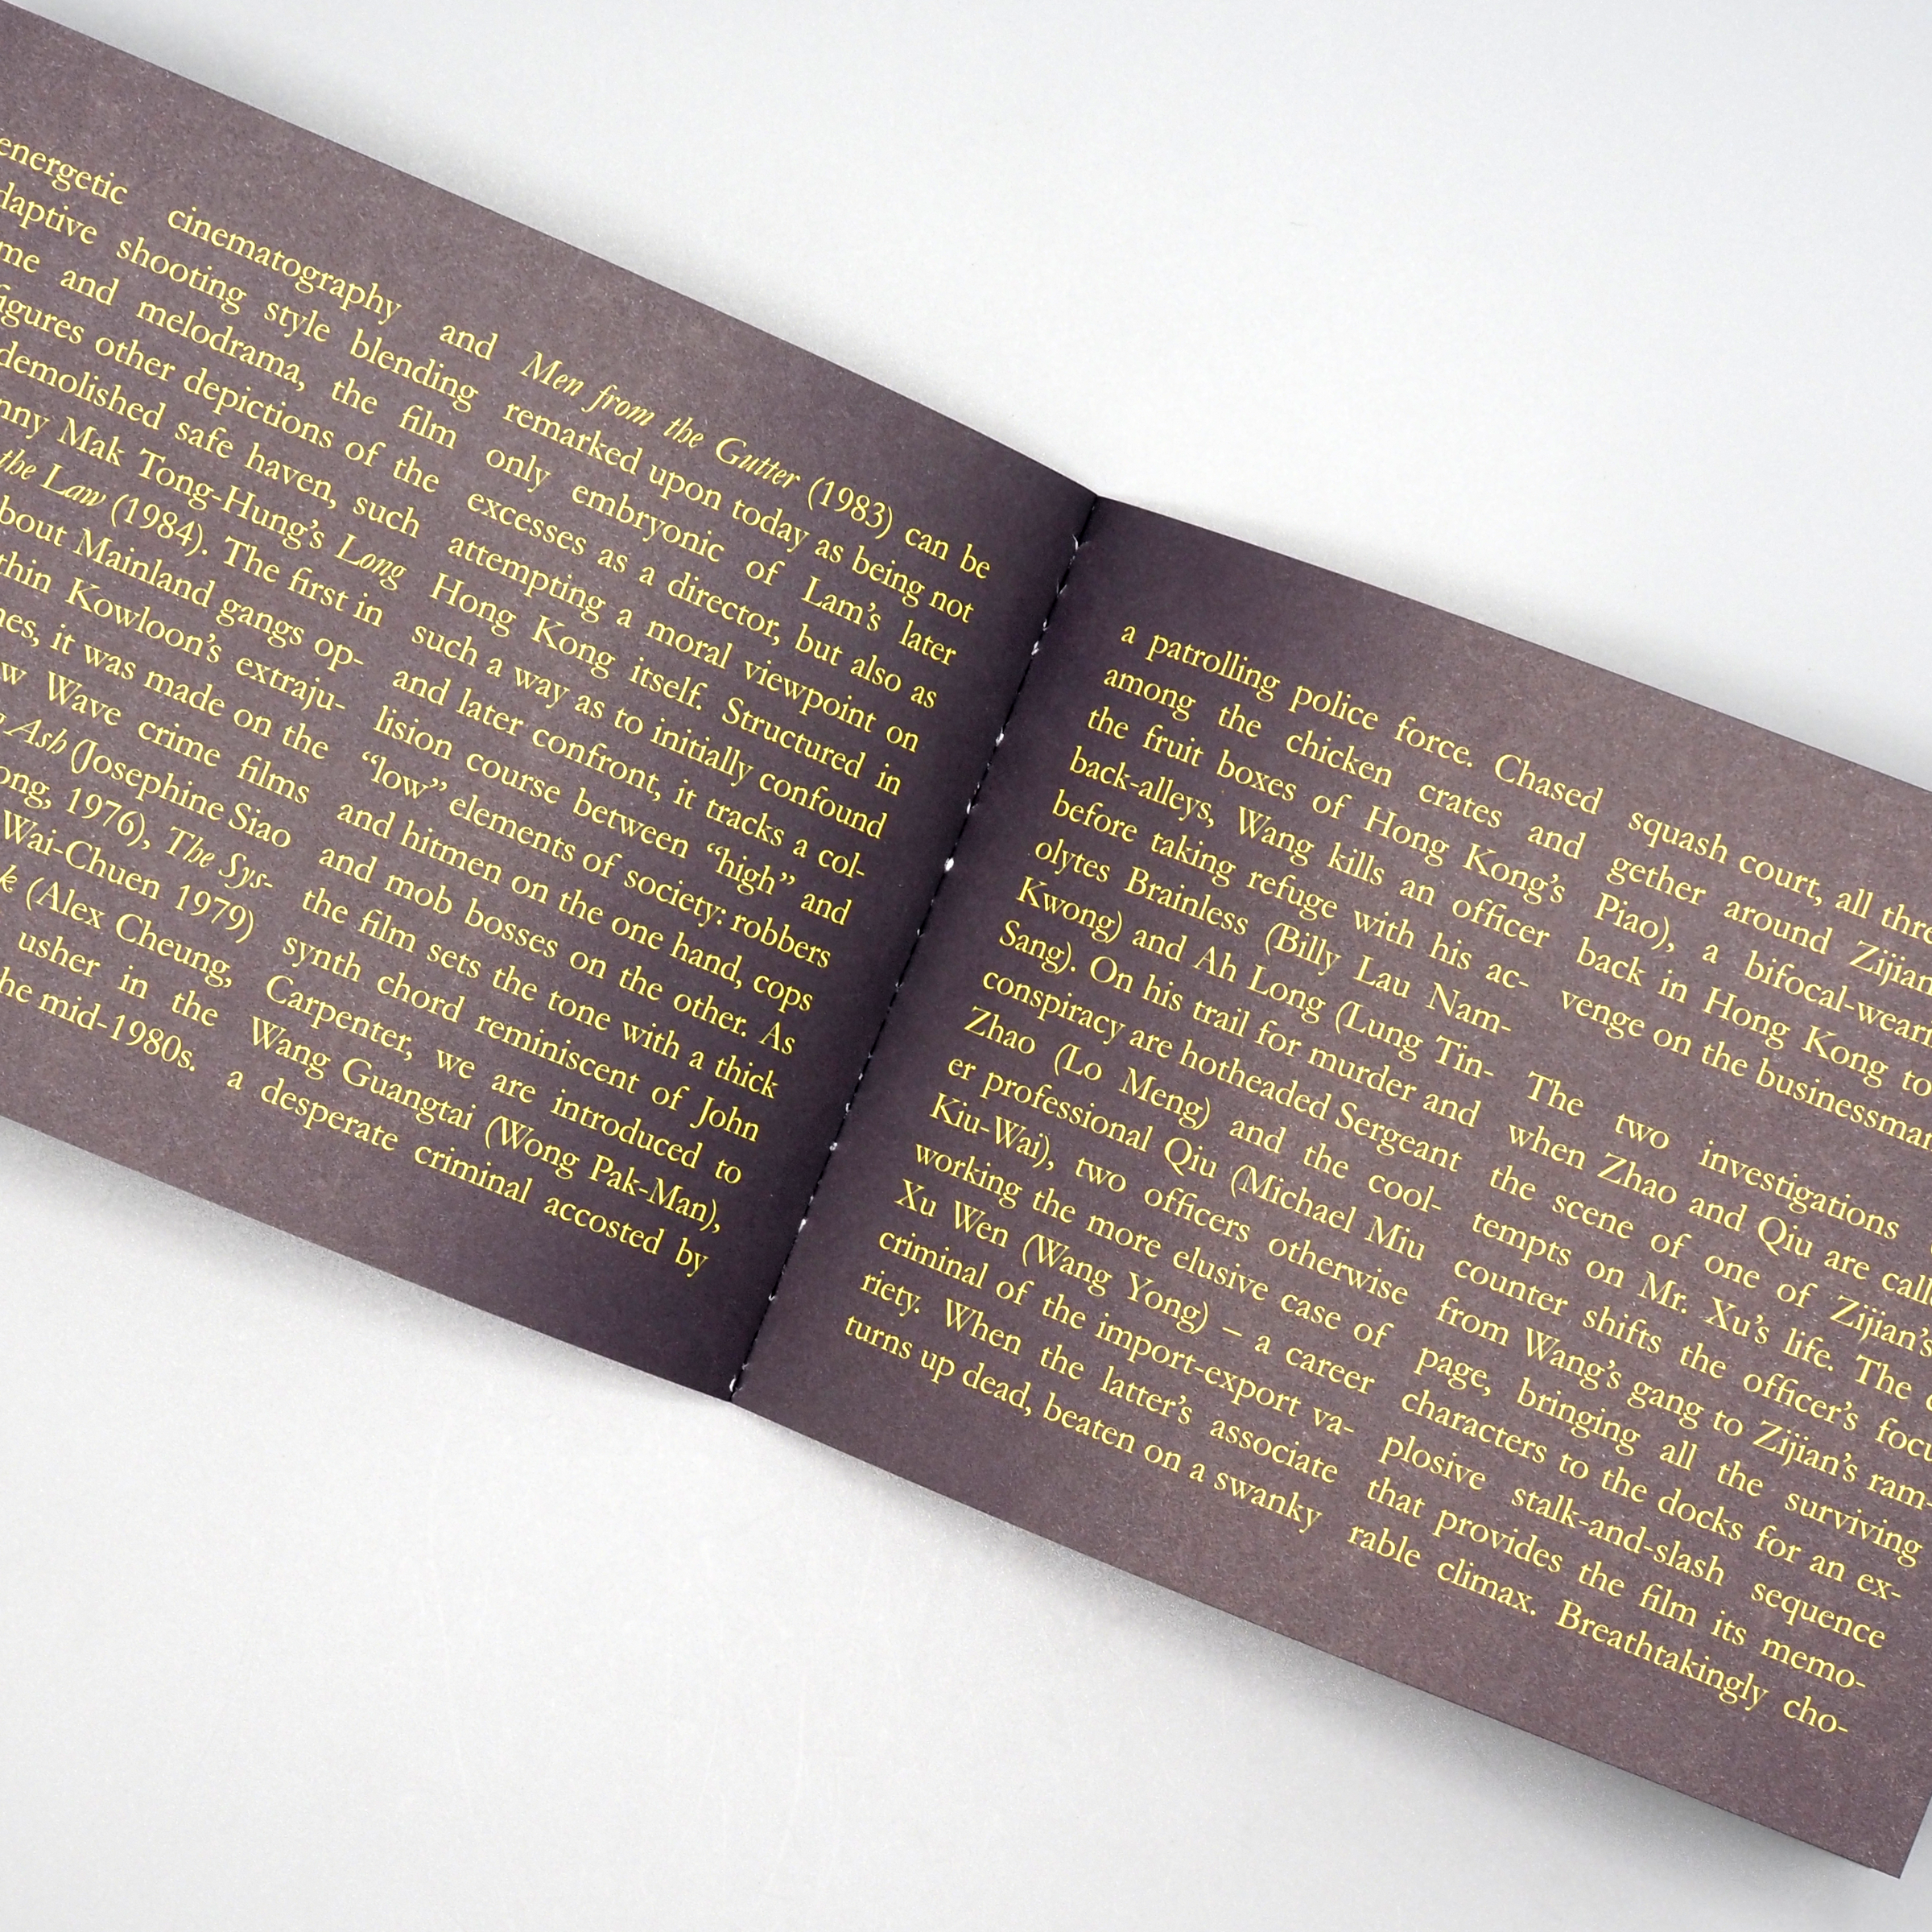 energetic cinematography and
shooting style blending
and melodrama, the film
other depictions of the
demolished safe haven, such
Mak Tong-Hung's Long
the Law (1984). The first in
Mainland gangs op-
Kowloon's extraju-
it was made on the
Wave crime films
Ash (Josephine Siao
1976), The Sys-
Wai-Chuen 1979)
(Alex Cheung,
usher in the
mid-1980s.
Men from the Gutter (1983) can be
remarked upon today as being not
only embryonic of Lam's later
excesses as a director, but also as
attempting a moral viewpoint on
Hong Kong itself. Structured in
such a way as to initially confound
and later confront, it tracks a col-
lision course between “high” and
“low” elements of society: robbers
and hitmen on the one hand, cops
and mob bosses on the other. As
the film sets the tone with a thick
synth chord reminiscent of John
Carpenter, we are introduced to
Wang Guangtai (Wong Pak-Man),
a desperate criminal accosted by
a patrolling police force. Chased
among the chicken crates and
the fruit boxes of Hong Kong's
back-alleys, Wang kills an officer
before taking refuge with his ac-
olytes Brainless (Billy Lau Nam-
Kwong) and Ah Long (Lung Tin-
Sang). On his trail for murder and
conspiracy are hotheaded Sergeant
Zhao (Lo Meng) and the cool-
er professional Qiu (Michael Miu
Kiu-Wai), two officers otherwise
working the more elusive case of
Xu Wen (Wang Yong) – a career
criminal of the import-export va-
riety. When the latter's associate
turns up dead, beaten on a swanky
squash court, all
gether around Zijian
Piao), a
back in Hong Kong to
venge on the
The two investigations
when Zhao and Qiu are
the scene of one of Zijian's
tempts on Mr. Xu's life. The
counter shifts the officer's
from Wang's gang to Zijian's ram-
page, bringing all the surviving
characters to the docks for an ex-
plosive stalk-and-slash sequence
that provides the film its memo-
rable climax. Breathtakingly cho-